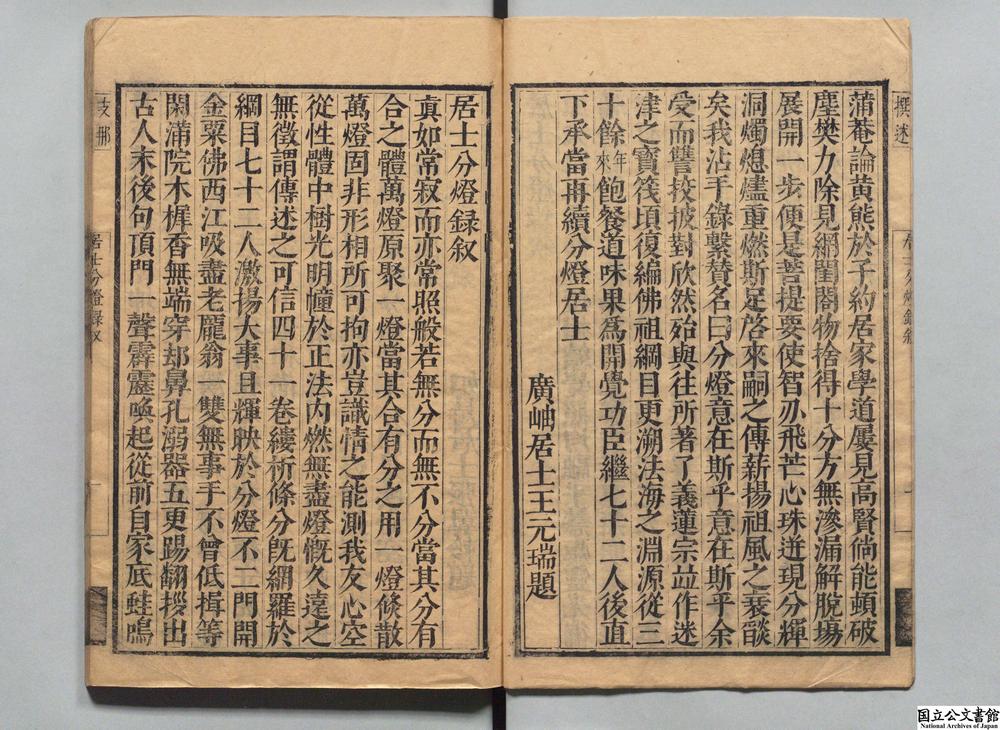 撰述
蒲菴論黄熊於子約居家學道屢見高賢倘能頓破
塵樊力除見網閨閤物捨得十分方無滲漏解脫塲
展開一步便是菩提要使智苏飛芒心珠迸現分輝
洞燭熄燼重燃斯足啓來嗣之傳薪揚祖風之衰燄
矣我沾手錄繫賛名曰分燈意在斯乎意在斯乎余
受而讐挍披對欣然殆與往所著了義蓮宗竝作迷
津之寶筏頃復編佛祖綱目更溯法海之淵源從三
十餘年來飽餐道味果爲開覺功臣繼七十二人後直
下承當再續分燈居士
廣岫居士王元瑞題
居士分燈録叙
眞如常寂而亦常照般若無分而無不分當其分有
合之體萬燈原聚一燈當其合有分之用一燈倐散
萬燈固非形相所可拘亦豈識情之能測我友心空
從性體中樹光明幢於正法内燃無盡燈慨久遠之
無徵謂傳述之可信四十一卷縷析條分旣網羅於
綱目七十二人激揚大事且輝映於分燈不二門開
金粟佛西江吸盡老龐翁一雙無事手不曾低揖等
閑滿院木樨香無端穿却鼻孔溺器五更踢翻拶出
古人末後句頂門一聲霹靂喚起從前自家底蛙鳴
支那
居士分燈録叙
国立公文書館
National Archives of Japan